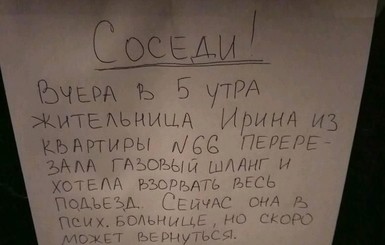 Соседи!
Вчера в 5 утра
жительница Ирина из
квартиры №66 перере-
зала газовый шланг и
хотела взорвать весь
подьезд. Сейчас она в
псих. больнице, но скоро
может вернуться.